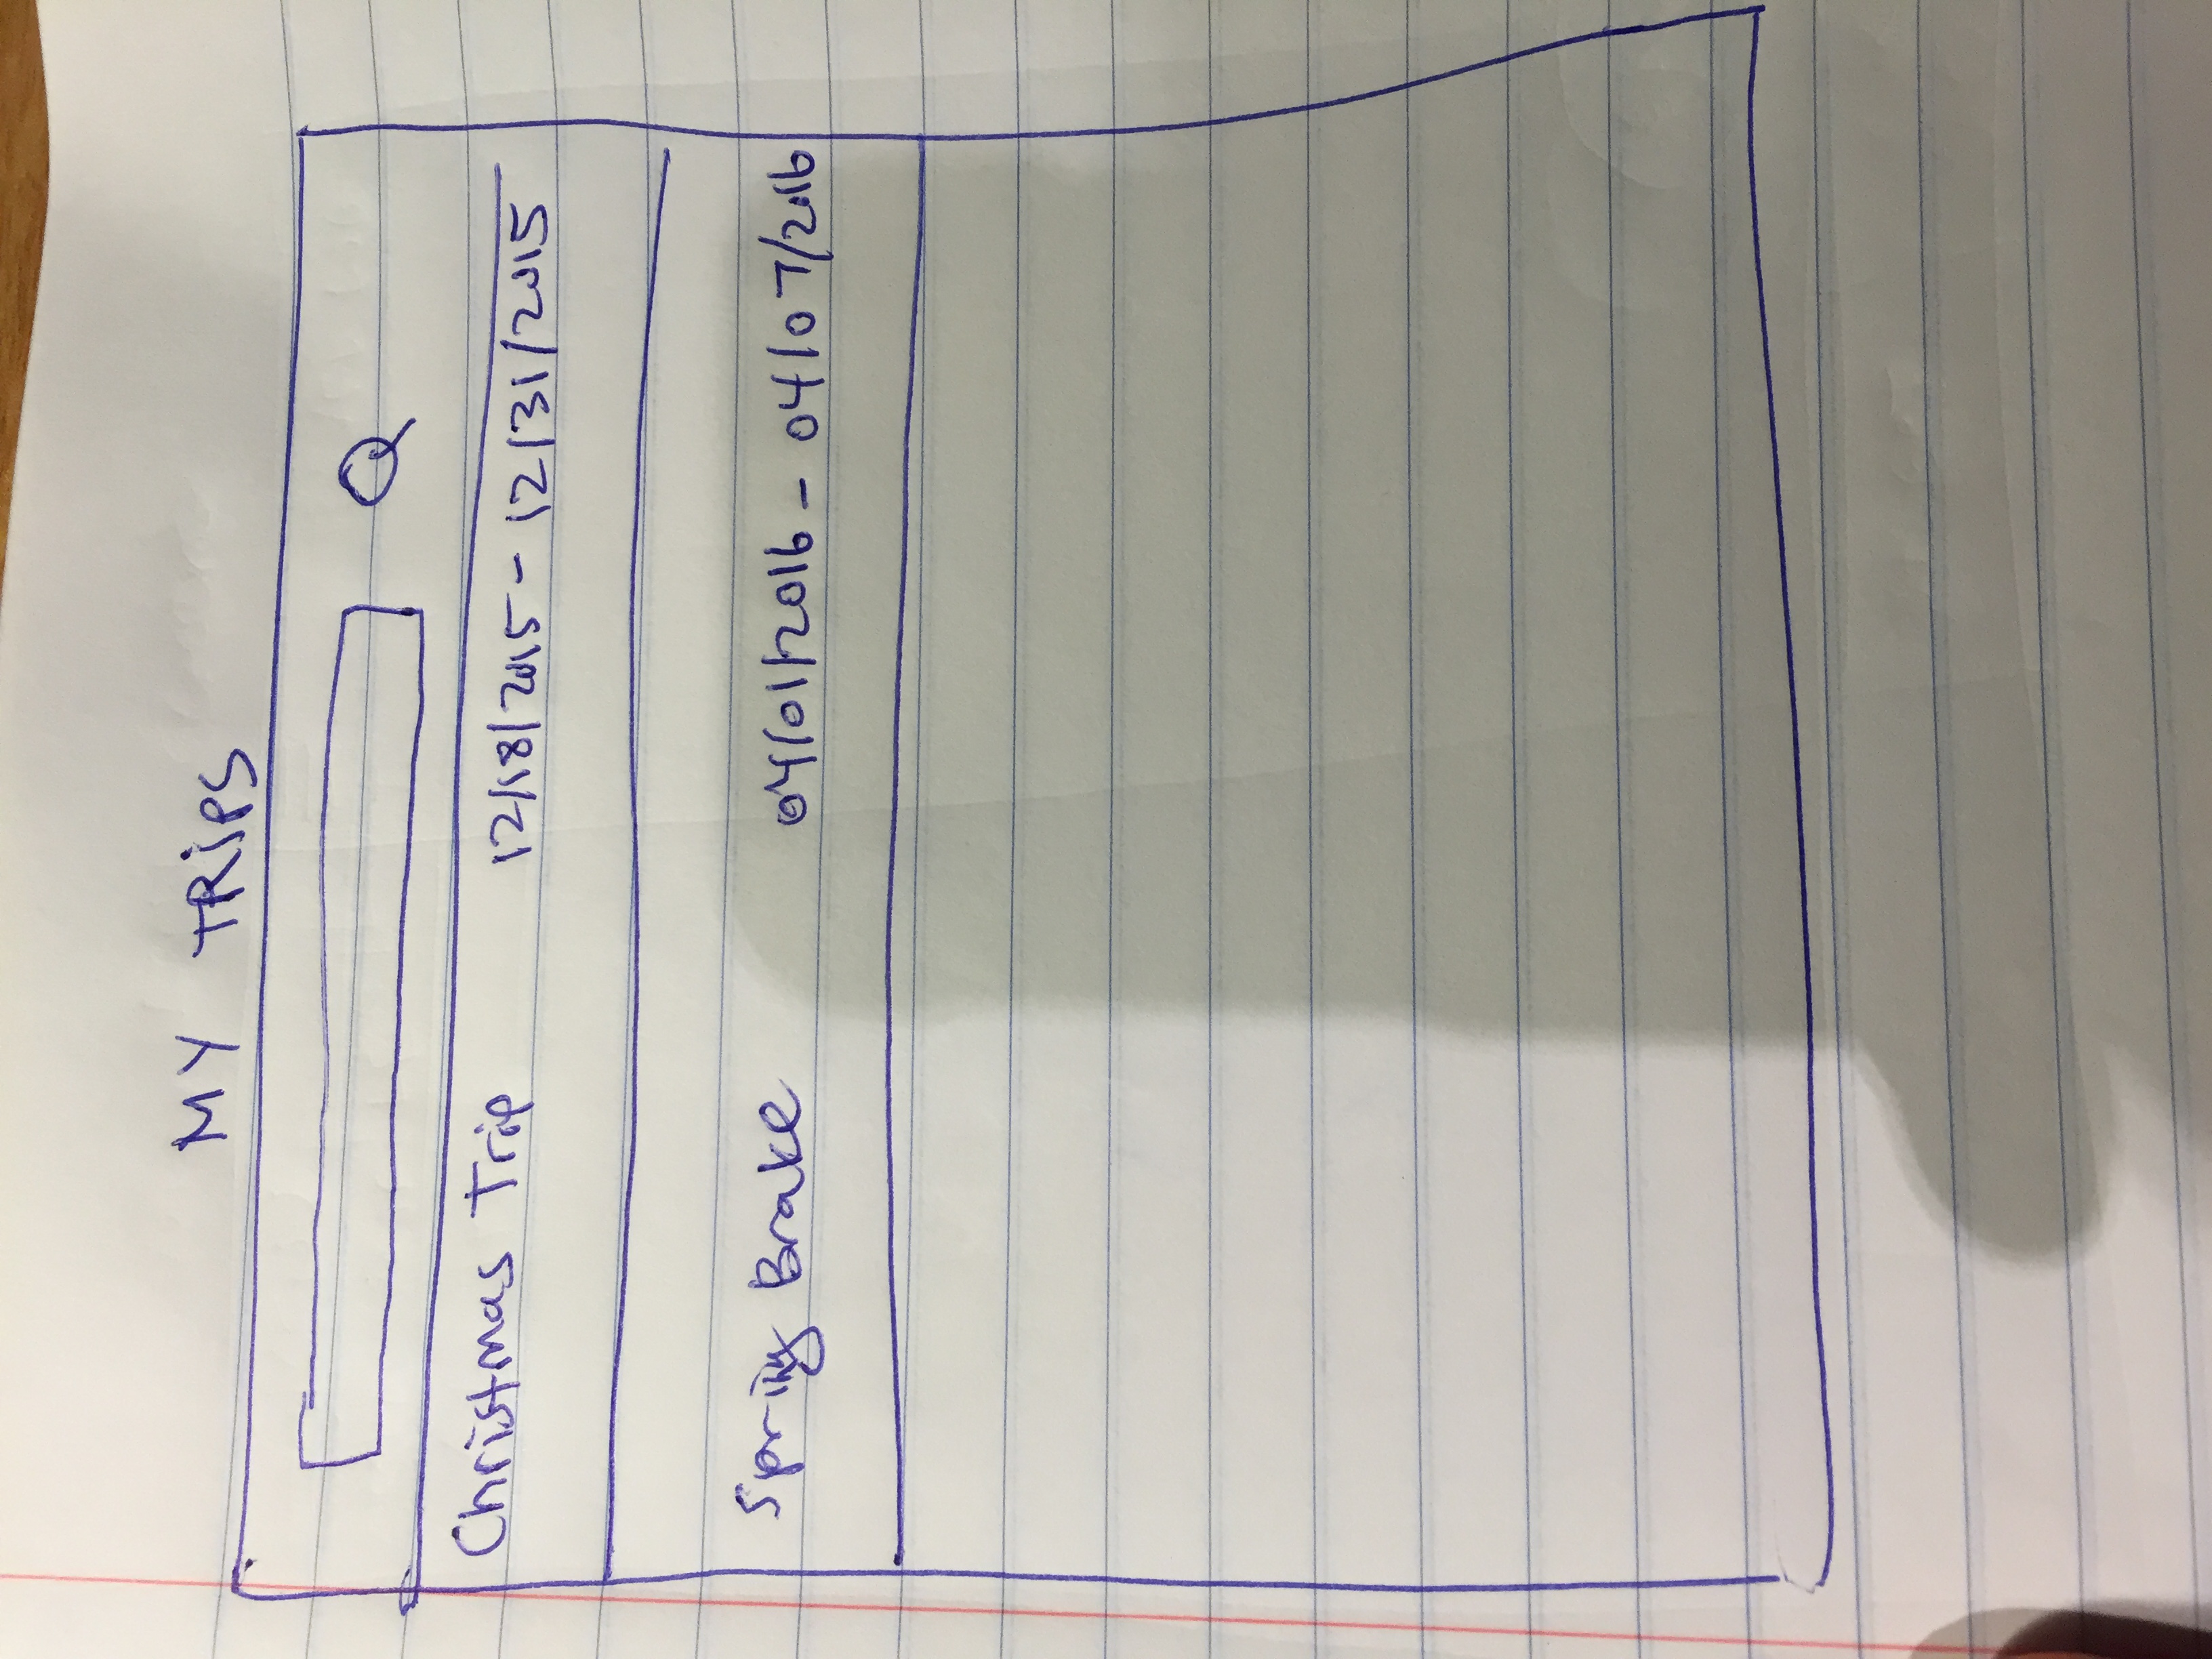 MY TRiPS
Christmas Trip 12/18/2015 - 12/31/2015
Spring Brake 04/01/2016 - 04/07/2016